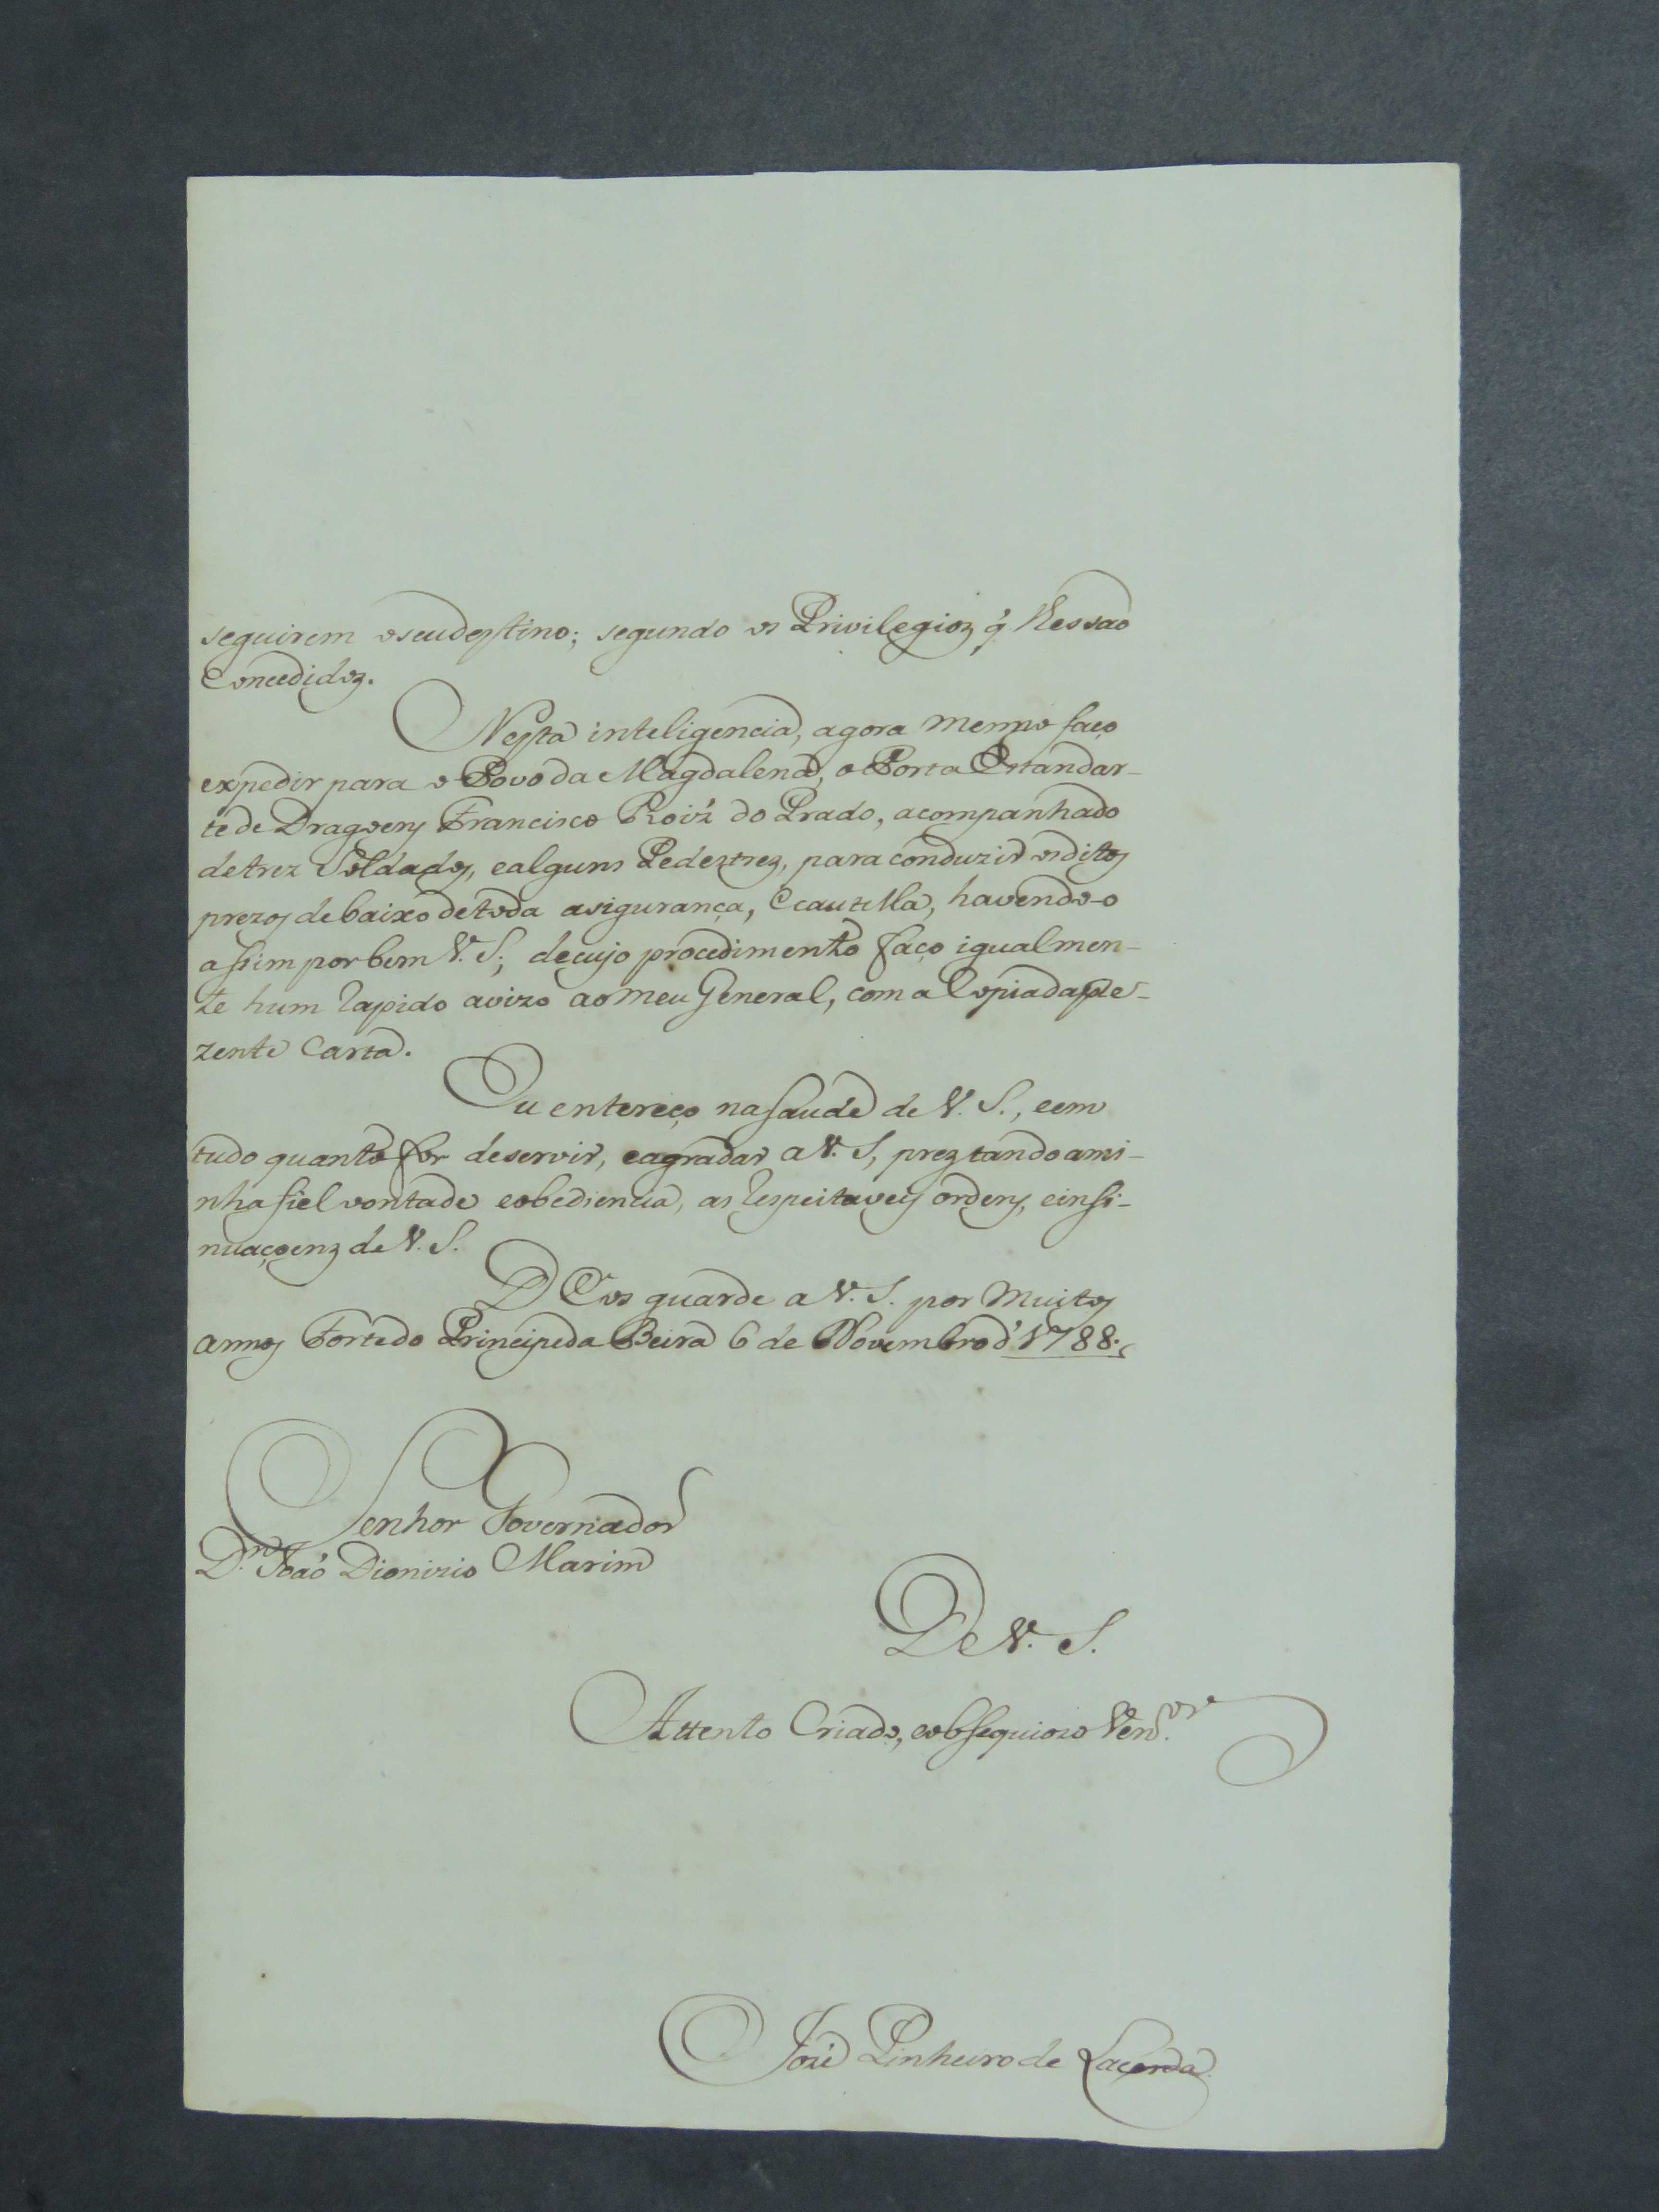 seguirem oseudestino; segundo os Privilegios q̃ lhes saõ
Concedidos.
Nesta inteligencia, agora mesmo faço
expedir para o Povo da Magdalena, o Porta Estandar-
te de Dragoens Francisco Roiz' do Prado, acompanhado
detrez Soldados, ealguns Pedestres, para conduzir osditos
prezos debaixo detoda asigurança, Ecautella, havendo-o
assim por bem V. S.; decujo procedimento faço igualmen-
te hum rapido avizo ao meu General, com a Copia dapre-
zente Carta.
Eu entereço na saude de V. S., eem
tudo quanto for deservir, eagradar a V. S, prestando ami-
nha fiel vontade eobediencia, as respeitaveis ordens, einsi-
nuaçoens de V. S.
DEos guarde a V. S. por muitos
annos Forte do Principe da Beira 6 de Novembro d' 1788.
Senhor Governador
D.m Joaõ Dionizio Marim
De V. S.
Attento Criado, eobsequiozo Ven.or
José Pinheiro de Lacerda.